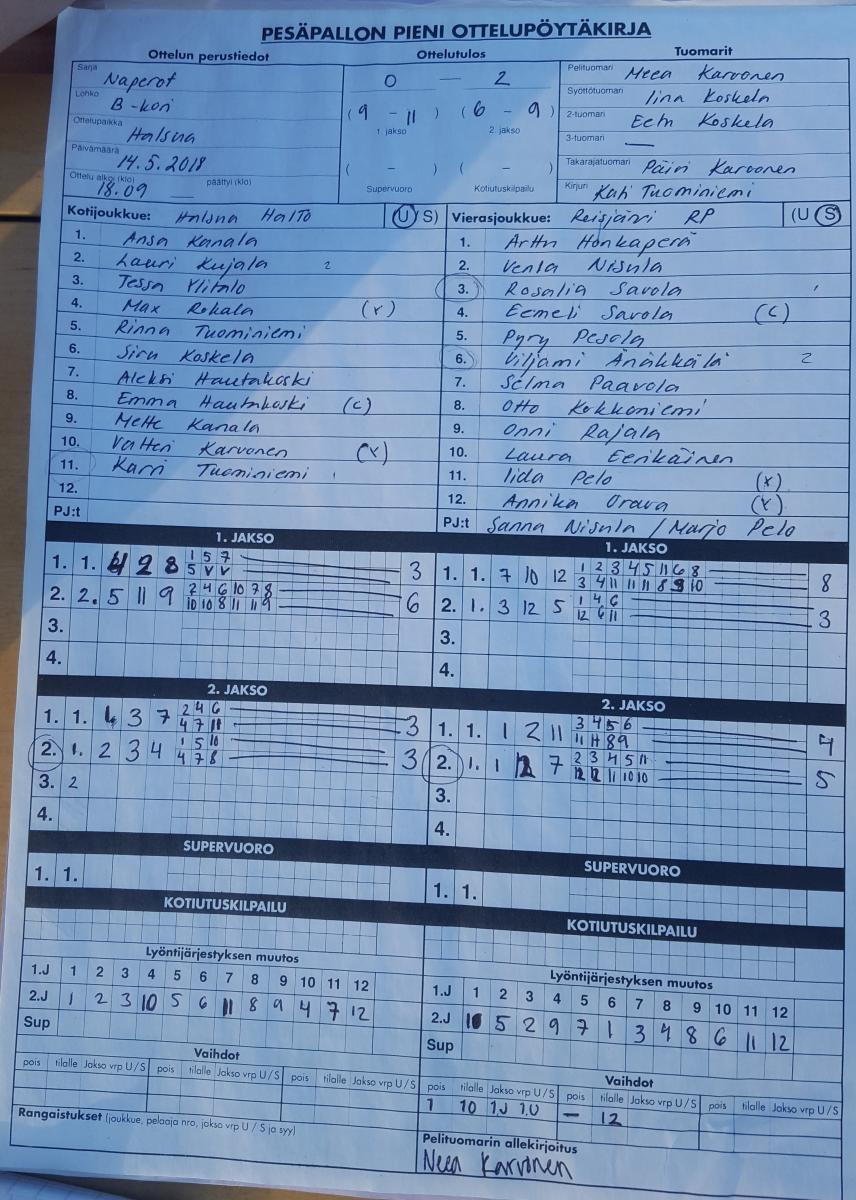 PESÄPALLON PIENI OTTELUPÖYTÄKIRJA
Ottelun perustiedot
Sarja Naperot
Lohko B-kori
Ottelupaikka Halsua
Päivämäärä 14.5.2018
Ottelu alkoi (klo) 18.09 päättyi (klo)
Ottelutulos
0 — 2
(9 - 11) (6 - 9)
1. jakso 2. jakso
( - ) ( - )
Supervuoro Kotiutuskilpailu
Tuomarit
Pelituomari Meea Karvonen
Syöttötuomari Iina Koskela
2-tuomari Eetu Koskela
3-tuomari —
Takarajatuomari Päivi Karvonen
Kirjuri Kati Tuominiemi
Kotijoukkue: Halsua HalTo (U S)
1. Ansa Kanala
2. Lauri Kujala 2
3. Tessa Ylitalo
4. Max Rokala (x)
5. Rinna Tuominiemi
6. Siru Koskela
7. Aleksi Hautakoski
8. Emma Hautakoski (c)
9. Mette Kanala
10. Valtteri Karvonen (x)
11. Karri Tuominiemi
12.
PJ:t
Vierasjoukkue: Reisjärvi RP (U S)
1. Arttu Honkaperä
2. Venla Nisula
3. Rosalia Savola
4. Eemeli Savola (c)
5. Pyry Pesola
6. Viljami Änäkkälä 2
7. Selma Paavola
8. Otto Kokkoniemi
9. Onni Rajala
10. Laura Eerikäinen
11. Iida Pelo (x)
12. Annika Orava (x)
PJ:t Sanna Nisula / Marjo Pelo
1. JAKSO
1. 1. 4 2 8 1 5 7 3
5 v v
2. 2. 5 11 9 2 4 6 10 7 8 6
10 10 8 11 11 9
3.
4.
1. JAKSO
1. 1. 7 10 12 1 2 3 4 5 11 6 8 8
3 4 11 11 11 8 9 10
2. 1. 3 12 5 1 4 6 3
12 6 11
3.
4.
2. JAKSO
1. 1. 3 7 2 4 6 3
4 7 11
2. 1. 2 3 4 1 5 10 3
4 7 8
3. 2
4.
2. JAKSO
1. 1. 1 2 11 3 4 5 6 4
11 11 8 9
2. 1. 1 12 7 2 3 4 5 11 5
12 12 11 10 10
3.
4.
SUPERVUORO
1. 1.
SUPERVUORO
1. 1.
KOTIUTUSKILPAILU
KOTIUTUSKILPAILU
Lyöntijärjestyksen muutos
1.J 1 2 3 4 5 6 7 8 9 10 11 12
2.J 1 2 3 10 5 6 11 8 9 4 7 12
Sup
Lyöntijärjestyksen muutos
1.J 1 2 3 4 5 6 7 8 9 10 11 12
2.J 10 5 2 9 7 1 3 4 8 6 11 12
Sup
Vaihdot
pois tilalle Jakso vrp U/S pois tilalle Jakso vrp U/S pois tilalle Jakso vrp U/S
Vaihdot
pois tilalle Jakso vrp U/S pois tilalle Jakso vrp U/S pois tilalle Jakso vrp U/S
1 10 1.J 1.U — 12
Rangaistukset (joukkue, pelaaja nro, jakso vrp U / S ja syy)
Pelituomarin allekirjoitus
Neea Karvonen